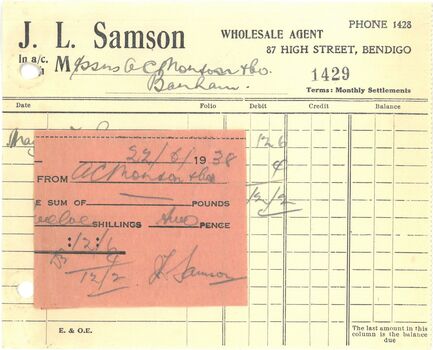 J. L. Samson
WHOLESALE AGENT
PHONE 1428
87 HIGH STREET, BENDIGO
In a/c.
Messrs A C Monson & Co.
Barham.
1429
Terms: Monthly Settlements
Date Folio Debit Credit Balance
May
12 6
4
12/2
22/6/1938
FROM A C Monson & Co
E SUM OF — POUNDS
SHILLINGS two PENCE
: 12 : 6
4
12/2
J L Samson
E. & O.E.
The last amount in this
column is the balance
due